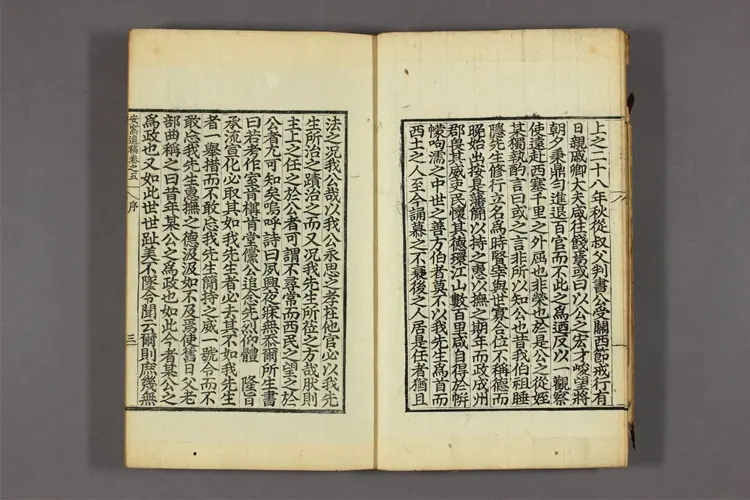 上之二十八年秋從叔父判書公受關西節戒行有
日親戚卿大夫咸往餞焉或曰以公之宏才峻望將
朝夕秉鼎勻進退百官而不此之爲迺反以一觀察
使遠赴西塞千里之外屈也非榮也於是公之從姪
某獨執酌言曰或之言非所以知公也昔我伯祖睡
隱先生修行立名爲時賢宰與世寡合位不稱德而
晩始出按是藩簡以持之惠以撫之期年而政成州
郡畏其威吏民懷其德環江山數百里咸自得於帲
幪呴濡之中世之善方伯者莫不以我先生爲首而
西土之人至今誦慕之不衰後之人居是任者猶且
法之况我公哉以我公永思之孝在他官必以我先
生所治之蹟治之而又况我先生所莅之方哉肰則
主上之任之於公者可謂不尋常而西民之望之於
公者尢可知矣嗚呼詩曰夙興夜寐無忝爾所生書
曰若考作室肯構肯堂儻公追念先烈仰體 隆旨
承流宣化必取其如我先生者必去其不如我先生
者一舉措而不敢忘我先生簡持之威一號令而不
敢忘我先生惠撫之德汲汲如不及焉使舊日父老
部曲稱之曰昔年某公之爲政也如此今者某公之
爲政也又如此世世趾美不墜令聞云爾則庶幾無
安窩遺稿卷之五 序 三